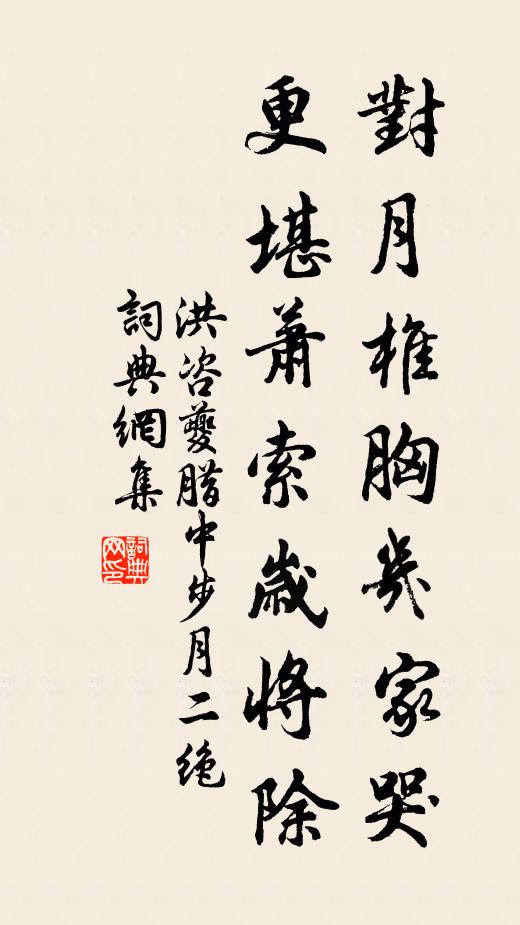 對月椎胸幾家哭
更堪蕭索歲將除
洪咨夔腊中步月二絶
詞典網集
詞典網印